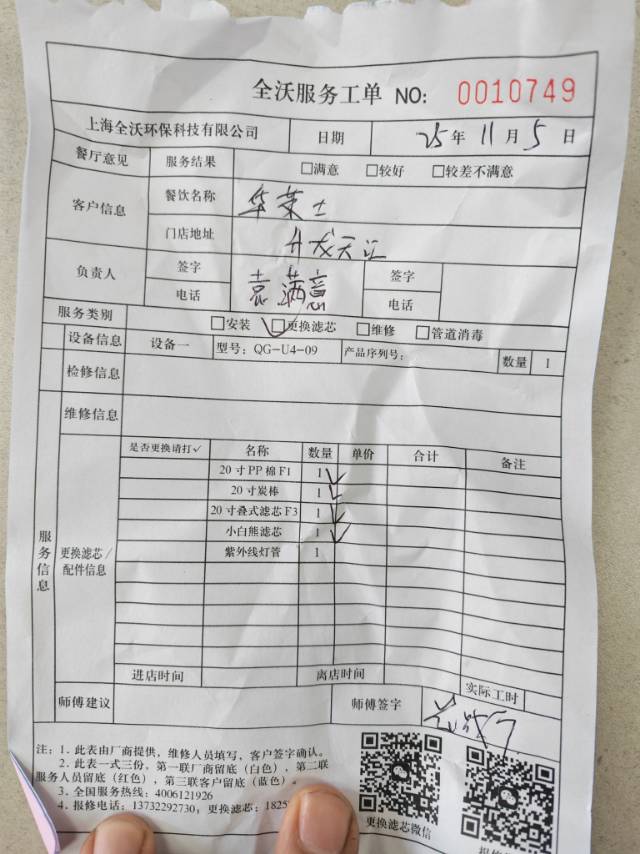 全沃服务工单 NO: 0010749
上海全沃环保科技有限公司 日期 25年11月5日
餐厅意见 服务结果 □满意 □较好 □较差不满意
客户信息 餐饮名称 华莱士
门店地址
负责人 签字 袁满意 签字
电话 电话
服务类别 □安装 ☑更换滤芯 □维修 □管道消毒
服务信息
设备信息 设备一 型号：QG-U4-09 产品序列号： 数量 1
检修信息
维修信息
更换滤芯/配件信息
是否更换请打✓ 名称 数量 单价 合计 备注
20寸PP棉F1 1 ✓
20寸炭棒 1 ✓
20寸叠式滤芯F3 1 ✓
小白熊滤芯 1 ✓
紫外线灯管 1
进店时间 离店时间 实际工时
师傅建议 师傅签字
注：1. 此表由厂商提供，维修人员填写，客户签字确认。
2. 此表一式三份，第一联厂商留底（白色），第二联
服务人员留底（红色），第三联客户留底（蓝色）。
3. 全国服务热线：4006121926
4. 报修电话：13732292730；更换滤芯：1825
更换滤芯微信